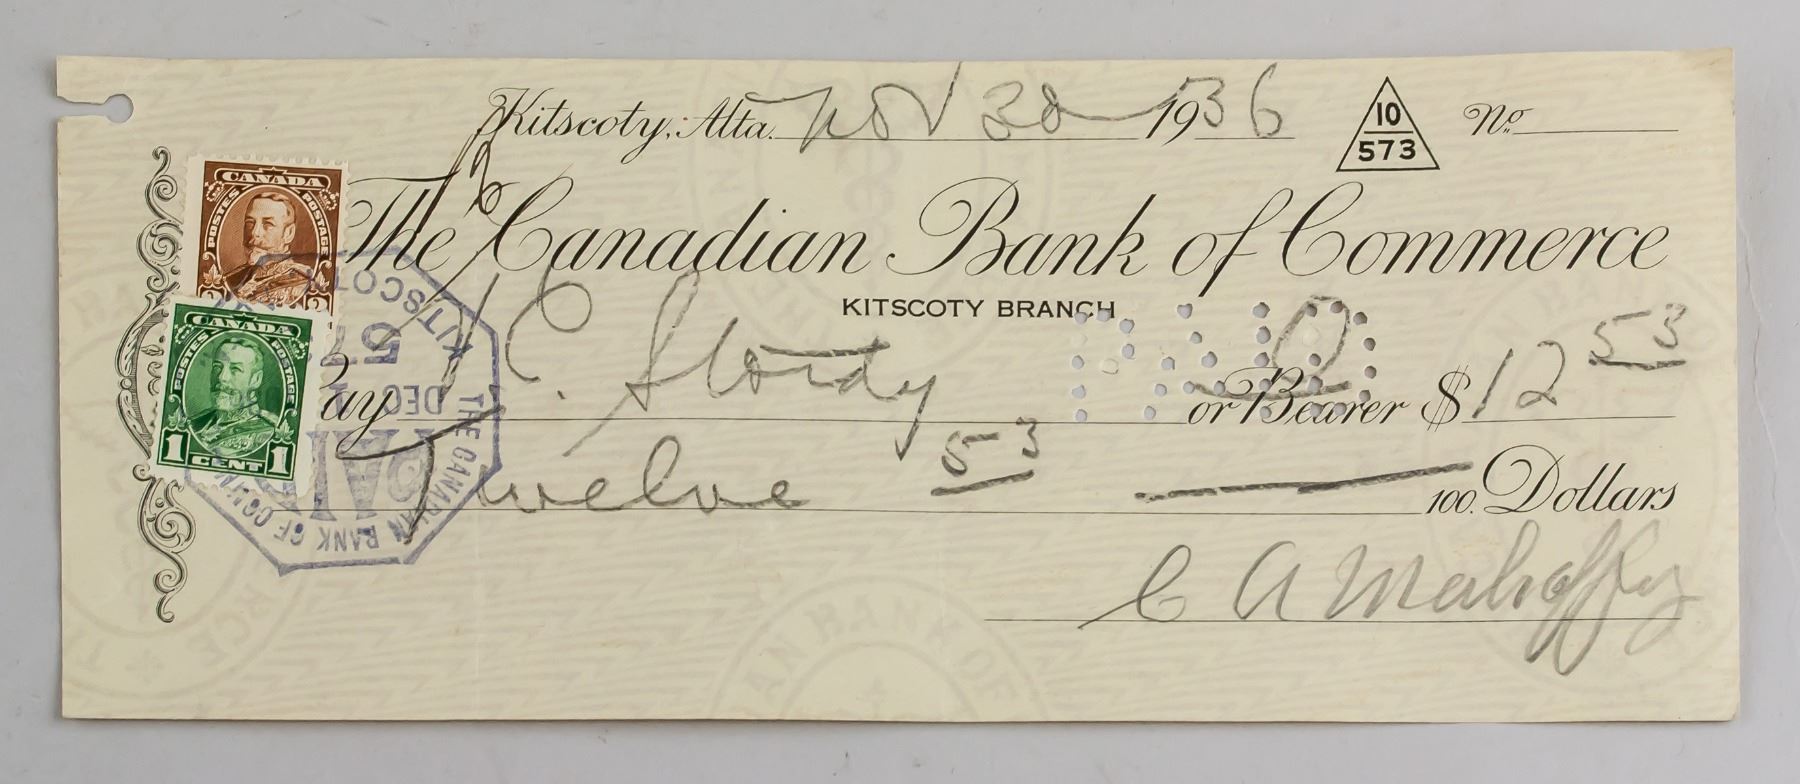 Kitscoty, Alta. Nov 30 1936 10/573 No.
The Canadian Bank of Commerce
KITSCOTY BRANCH
Pay C. Stordy or Bearer $12 53
Twelve 53 100. Dollars
C A Mahaffey
CANADA
POSTES POSTAGE
2 2
CANADA
POSTES POSTAGE
1 CENT 1
THE CANADIAN BANK OF COMM
KITSCOTY
DEC
PAI
AN BANK OF